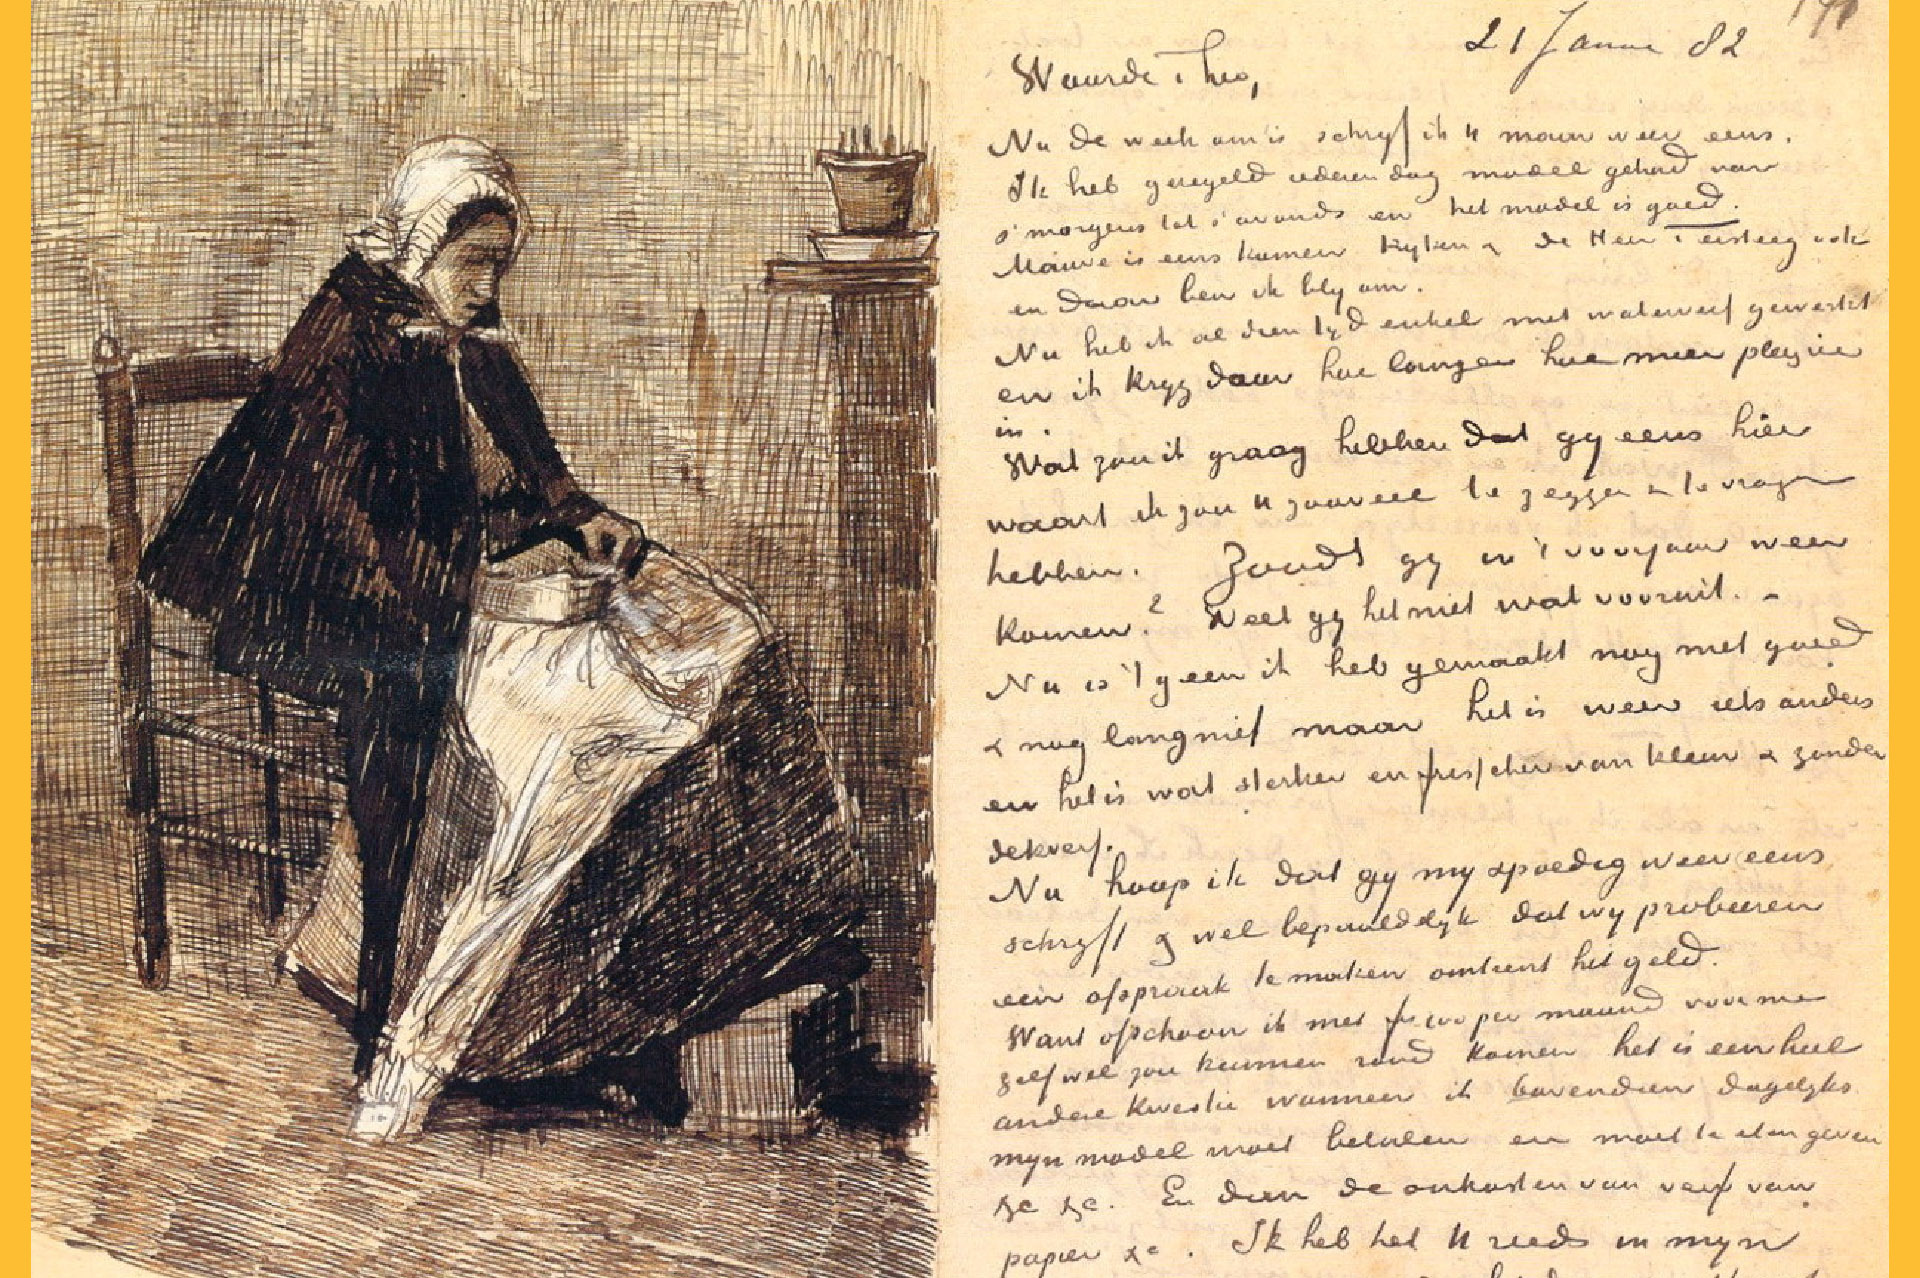 21 Janu 82
Waarde Theo,
Nu de week om is schrijf ik U maar weer eens.
Ik heb geregeld iederen dag model gehad van
s'morgens tot s'avonds en het model is goed.
Mauve is eens komen kijken & de Heer Tersteeg ook
en daar ben ik blij om.
Nu heb ik al dien tijd enkel met waterverf gewerkt
en ik krijg daar hoe langer hoe meer plezier
in.
Wat zou ik graag hebben dat gij eens hier
waart ik zou U zooveel te zeggen & te vragen
hebben. Zoudt gij in 't voorjaar weer
komen? Weet gij het niet wat vooruit. –
Nu is 't geen ik heb gemaakt nog niet goed
& nog lang niet maar het is weer iets anders
en het is wat sterker en frisscher van kleur & zonder
dekverf.
Nu hoop ik dat gij mij spoedig weer eens
schrijft & wel bepaaldelijk dat wij probeeren
een afspraak te maken omtrent het geld.
Want ofschoon ik met fr 100 per maand voor me
zelf wel zou kunnen rond komen het is een heel
andere kwestie wanneer ik bovendien dagelijks
mijn model moet betalen en moet te eten geven
&c &c. En dan de onkosten van verf van
papier &c. Ik heb het U reeds in mijn